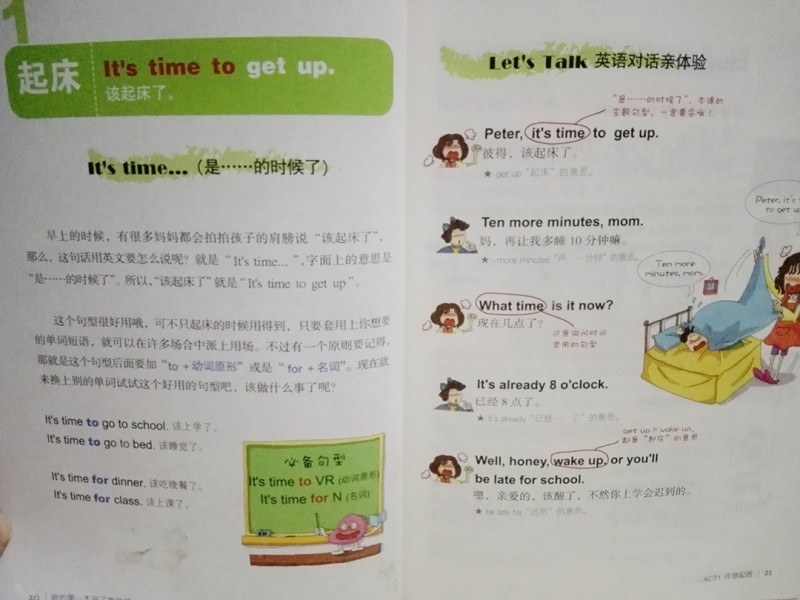 1
起床
It's time to get up.
该起床了。
It's time...（是……的时候了）
早上的时候，有很多妈妈都会拍拍孩子的肩膀说“该起床了”，
那么，这句话用英文要怎么说呢？就是“It's time...”，字面上的意思是
“是……的时候了”。所以，“该起床了”就是“It's time to get up”。
这个句型很好用哦，可不只起床的时候用得到，只要套用上你想要
的单词短语，就可以在许多场合中派上用场。不过有一个原则要记得，
那就是这个句型后面要加“to＋动词原形”或是“for＋名词”。现在就
来换上别的单词试试这个好用的句型吧，该做什么事了呢？
It's time to go to school. 该上学了。
It's time to go to bed. 该睡觉了。
It's time for dinner. 该吃晚餐了。
It's time for class. 该上课了。
必备句型
It's time to VR (动词原形)
It's time for N (名词)
20
Let's Talk 英语对话亲体验
“是……的时候了”，本课的
主题句型，一定要会哦！
Peter, it's time to get up.
彼得，该起床了。
★ get up “起床”的意思。
Ten more minutes, mom.
妈，再让我多睡 10 分钟嘛。
★ ...more minutes “再……分钟”的意思。
Peter, it's
to get up
Ten more
minutes, mom.
What time is it now?
现在几点了？
这是询问时间
常用的句型
It's already 8 o'clock.
已经 8 点了。
★ It's already “已经……了”的意思。
get up = wake up,
都是“起床”的意思
Well, honey, wake up, or you'll
be late for school.
嗯，亲爱的，该醒了，不然你上学会迟到的。
★ be late for “迟到”的意思。
ACT1 作息起居 | 21